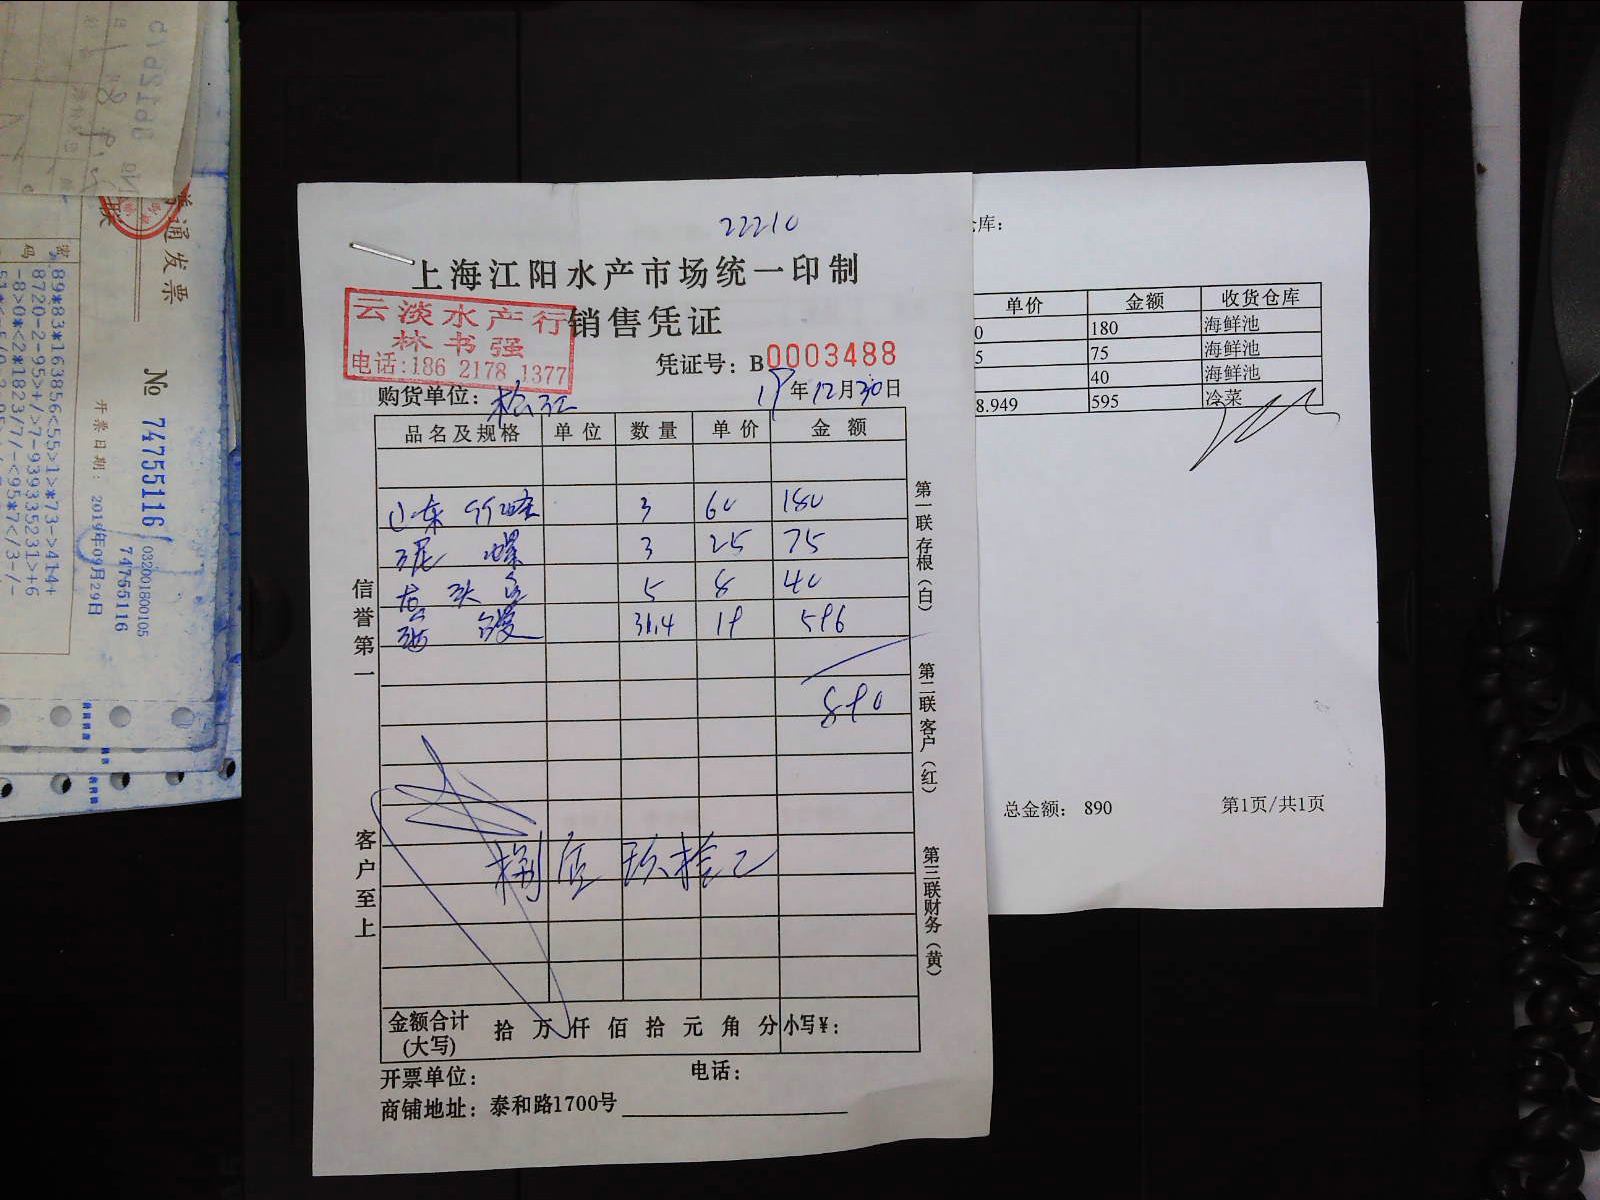 22210
上海江阳水产市场统一印制
销售凭证
云淡水产行
林书强
电话:186 2178 1377
凭证号: B0003488
购货单位: 松江 19年12月30日
品名及规格 单位 数量 单价 金额
山东 3 60 180
泥螺 3 25 75
龙头 5 8 40
31.4 19 596
890
捌佰玖拾
金额合计(大写) 拾 万 仟 佰 拾 元 角 分 小写¥:
开票单位: 电话:
商铺地址: 泰和路1700号
信誉第一
客户至上
第一联存根(白)
第二联客户(红)
第三联财务(黄)
仓库:
单价 金额 收货仓库
0 180 海鲜池
5 75 海鲜池
40 海鲜池
8.949 595 冷菜
总金额: 890 第1页/共1页
普通发票
联
No 74755116
032001800105
74755116
开票日期: 2019年09月29日
密码
89*83*163856<55>1>*73->414+
8720-2-95>+/>7-939335231>+6
-8>0*<2*1823/7/-<95*7</3-/-